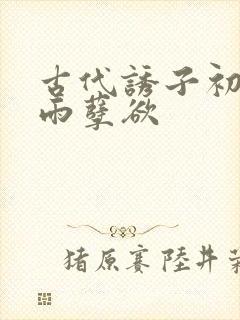 古代誘子初
雨孽欲
猪原賽陸井